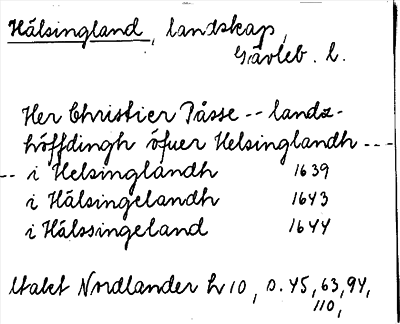 Hälsingland, landskap,
Gävleb. l.
Her Christier Påsse -- landz-
höffdingh öfuer Helsinglandh ---
-- i Helsinglandh 1639
i Hälsingelandh 1643
i Hälssingeland 1644
Utakt Nordlander h 10, s. 45, 63, 94,
110,